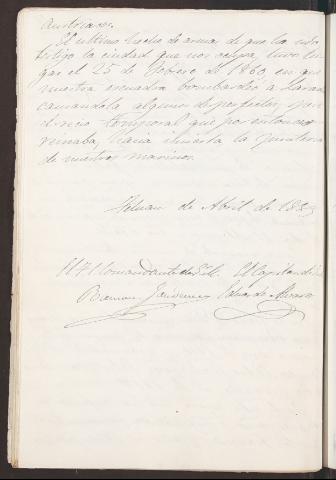 Austriacos.
El ultimo hecho de armas de que ha sido
objeto la ciudad que nos ocupa, tuvo lu-
gar el 25 de febrero de 1860, en que
nuestra escuadra bombardeó a Larache
causandola algunos desperfectos, pero
el recio temporal que por entonces
reinaba, hacia incierta la punteria
de nuestros marinos.
Tetuan de Abril de
El Comandante de E. M. El Capitan
Ramon Jaúdenes Eduardo Alvarez